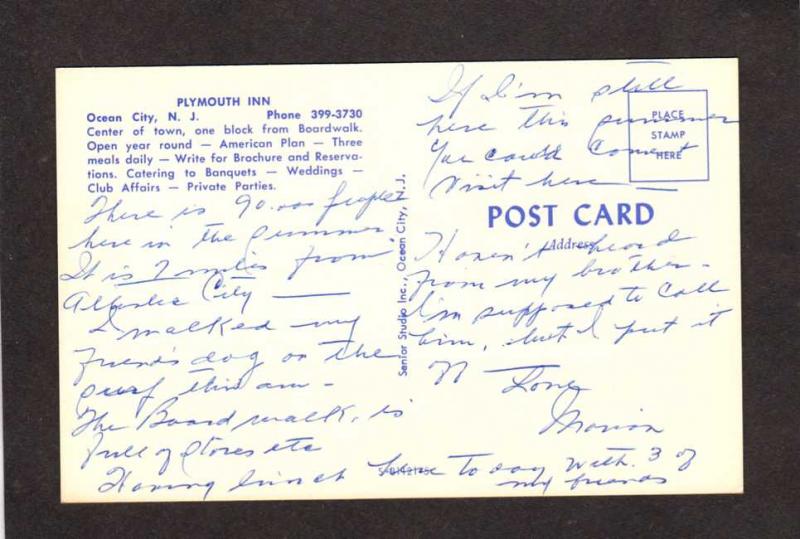 PLYMOUTH INN
Ocean City, N. J. Phone 399-3730
Center of town, one block from Boardwalk.
Open year round — American Plan — Three
meals daily — Write for Brochure and Reserva-
tions. Catering to Banquets — Weddings —
Club Affairs — Private Parties.
There is 90.000 people
here in the summer
It is 7 miles from
Atlantic City —
I walked my
friend's dog on the
surf this am -
The Board walk, is
full of stores etc
Having lunch here to day with 3 of
my friends
Senior Studio Inc., Ocean City, N. J.
If I'm still
here this summer
you could come &
visit here —
PLACE
STAMP
HERE
POST CARD
Address
Haven't heard
from my brother -
I'm supposed to call
him, but I put it
off — Love
Marion